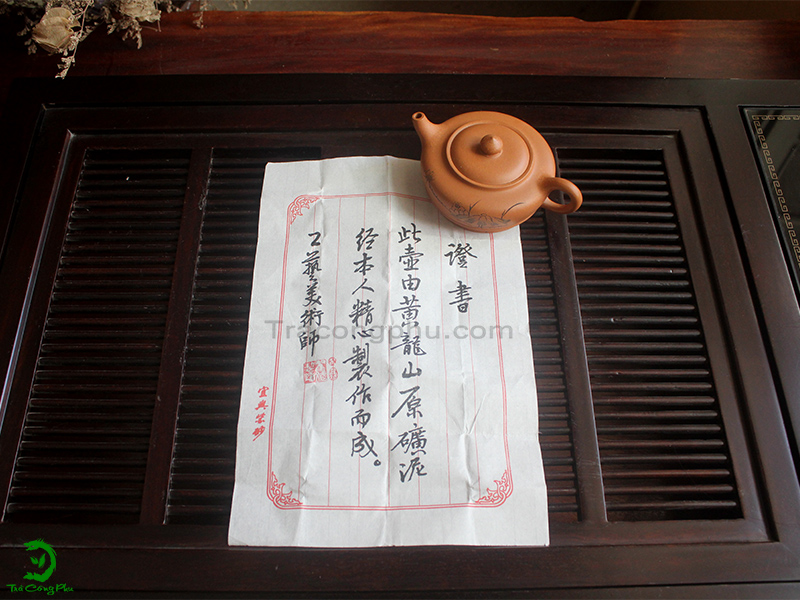 證書
此壺由黄龍山原礦泥
经本人精心製作而成。
工藝美術師
宜興紫砂
Tracongphu.com
Trà Công Phu